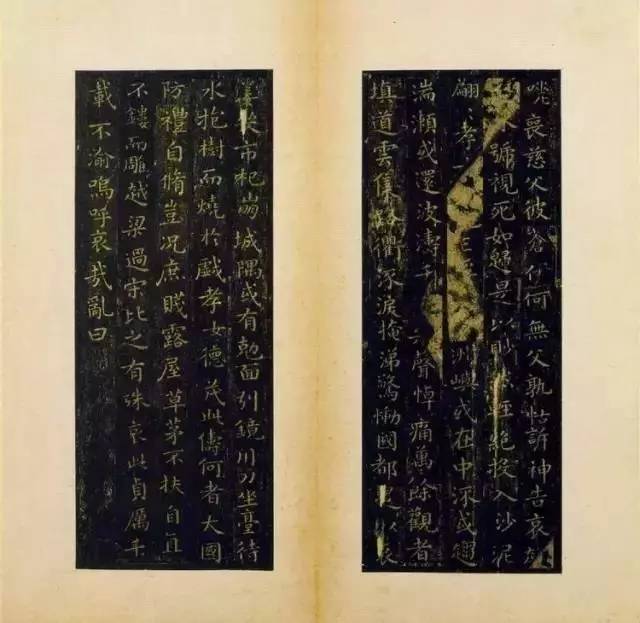 咷喪慈父彼蒼伊何無父孰怙訴神告哀赴
號視死如歸是以眇然輕絕投入沙泥
翩〻孝洲嶼或在中流或趨
湍瀨或還波濤千聲悼痛萬餘觀者
填道雲集路衢流淚掩涕驚慟國都是以哀
姜哭市杞崩城隅或有剋面引鏡刀坐臺待
水抱樹而燒於戲孝女德茂此儔何者大國
防禮自脩豈況庶賤露屋草茅不扶自直
不鏤而雕越梁過宋比之有殊哀此貞厲千
載不渝嗚呼哀哉亂曰